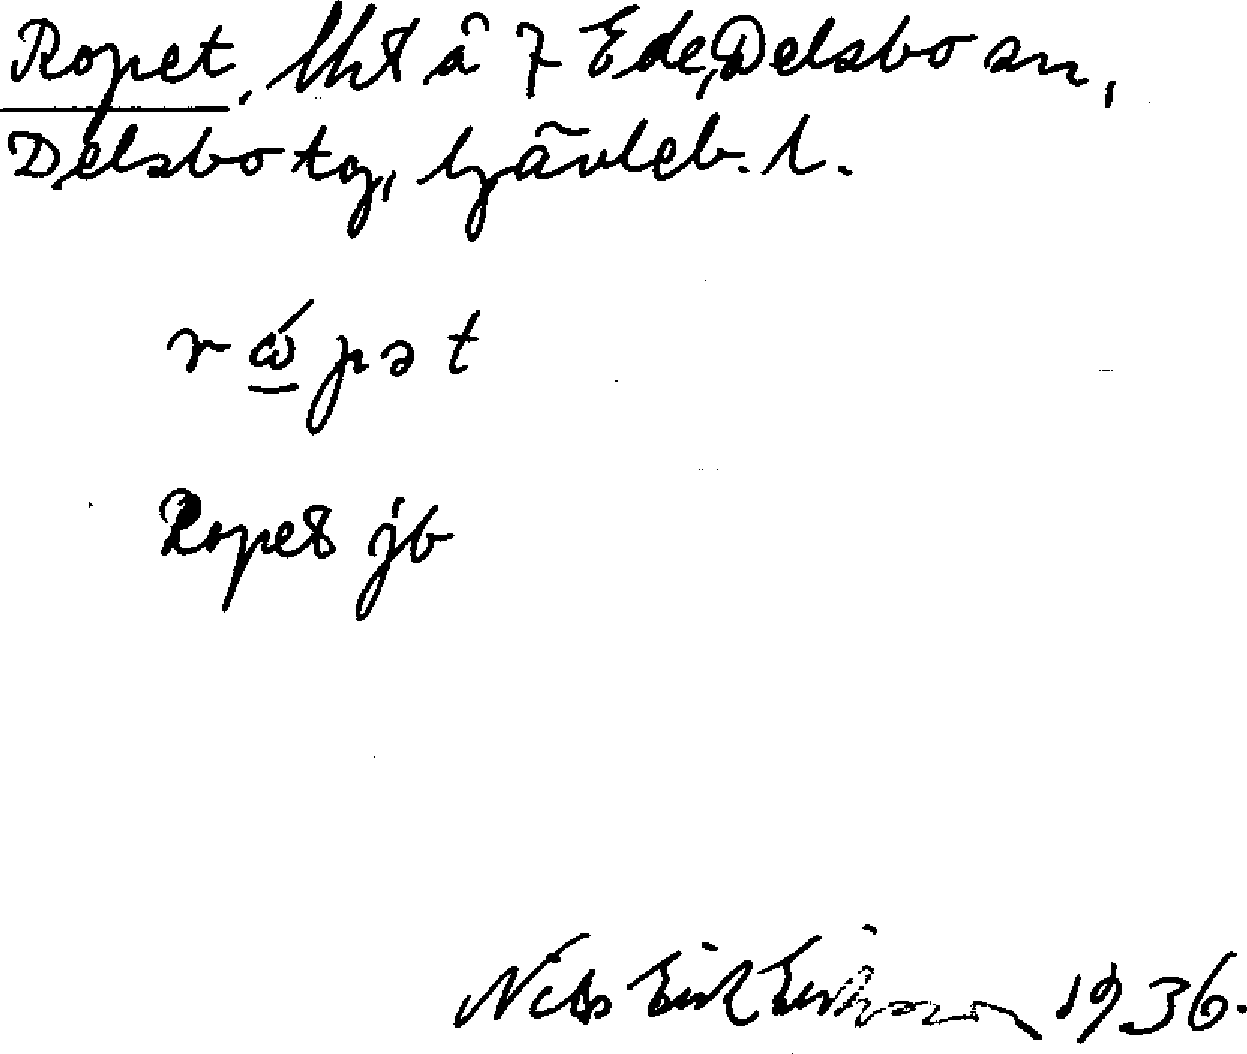 Ropet, lht å 7 Ede, Delsbo sn,
Delsbo tg, Gävleb. l.
r ώ p ə t
Ropet jb
Nils Erik Eriksson 1936.